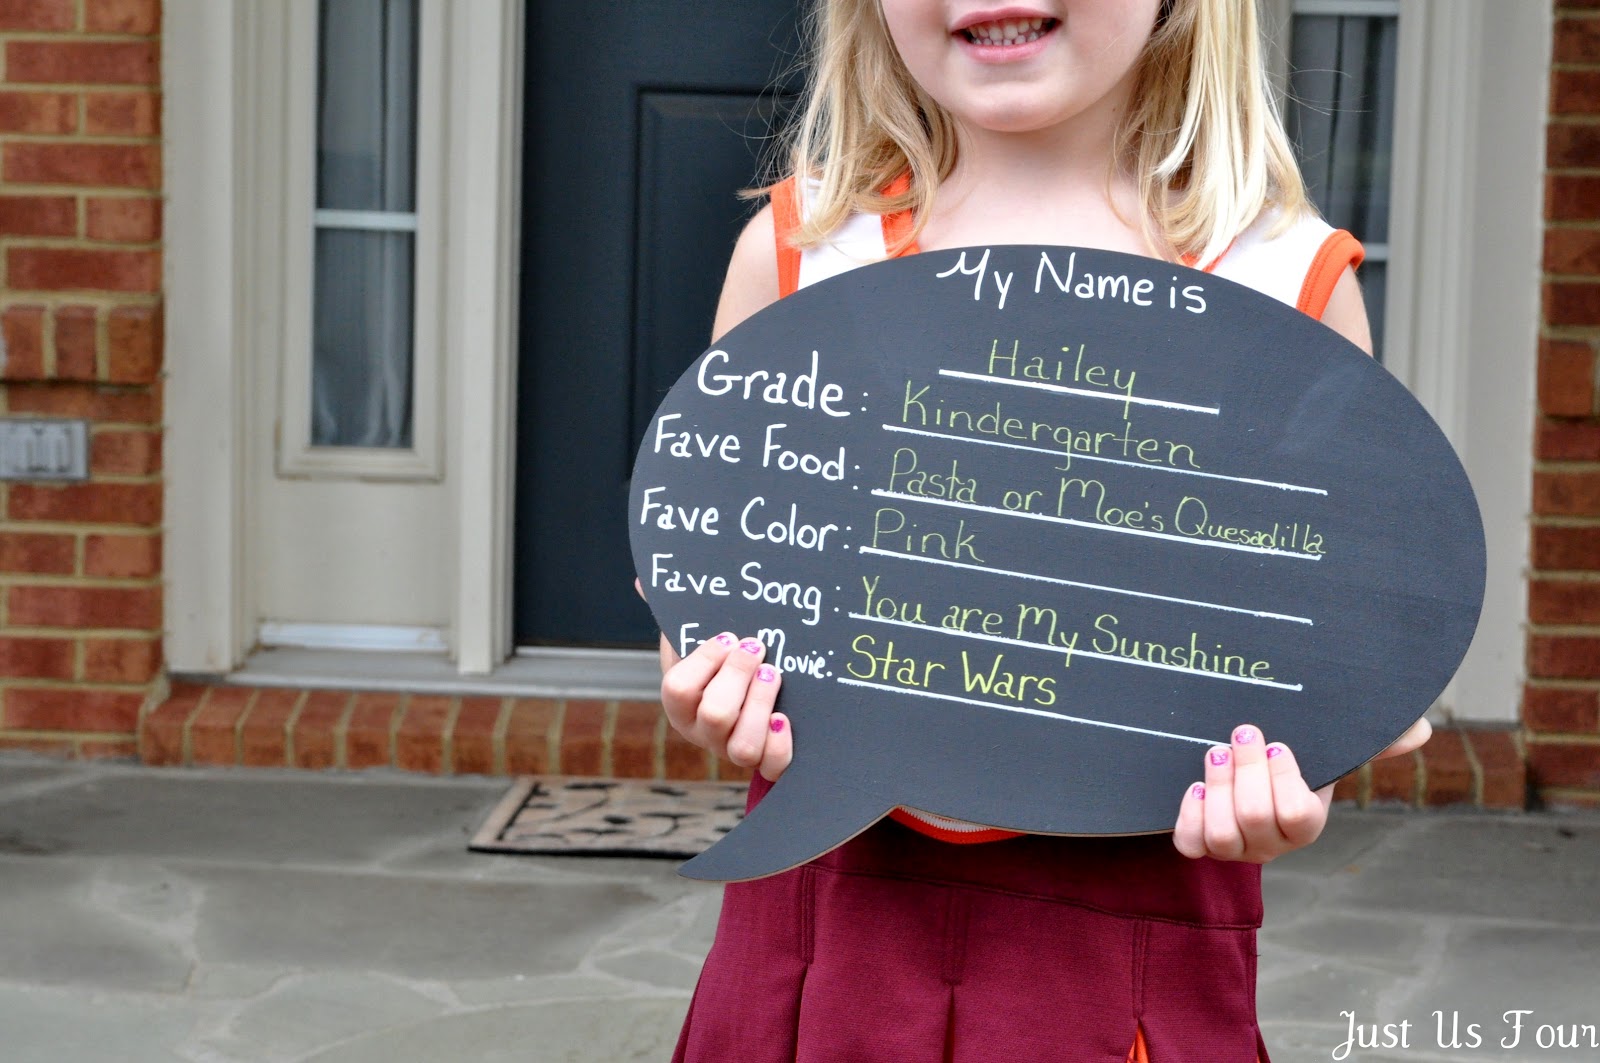 My Name is
Hailey
Grade: Kindergarten
Fave Food: Pasta or Moe's Quesadilla
Fave Color: Pink
Fave Song: You are My Sunshine
Movie: Star Wars
Just Us Four